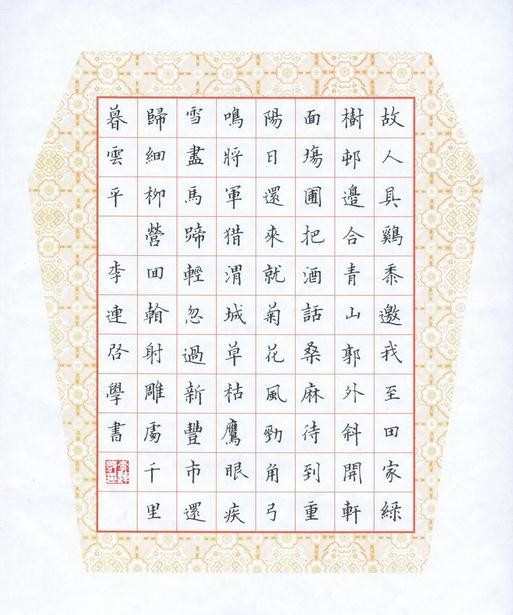 故人具雞黍邀我至田家綠
樹邨邊合青山郭外斜開軒
面塲圃把酒話桑麻待到重
陽日還來就菊花風勁角弓
鳴將軍猎渭城草枯鷹眼疾
雪盡馬蹄輕忽過新豐市還
歸細柳營回翰射雕處千里
暮雲平
李連启學書